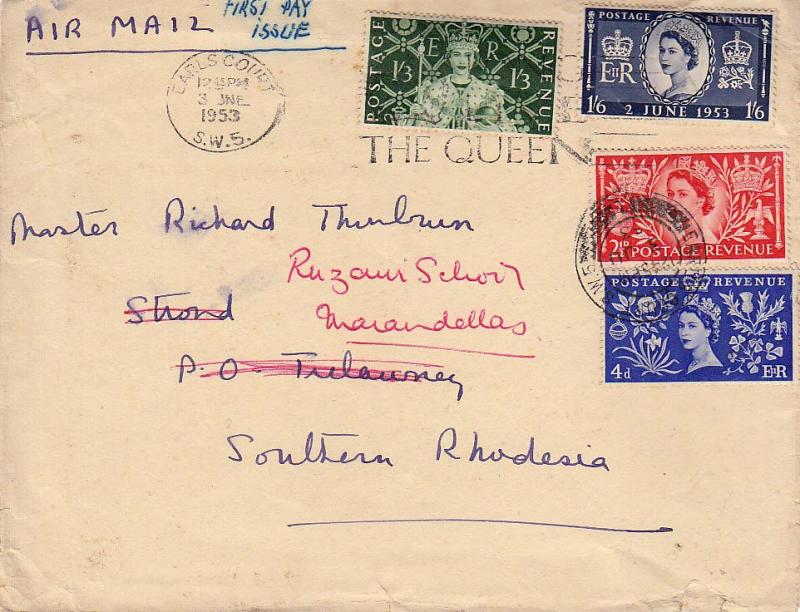 AIR MAIL
FIRST DAY
ISSUE
EARLS COURT
12 15 PM
3 JNE
1953
S.W.5.
POSTAGE
E R
1/3 1/3
REVENUE
THE QUEEN
POSTAGE REVENUE
EIIR
1/6 2 JUNE 1953 1/6
2½D POSTAGE REVENUE
S.W.5
POSTAGE REVENUE
4d EIIR
Master Richard
Ruzawi School
Strond Marandellas
P.O. Trelawney
Southern Rhodesia